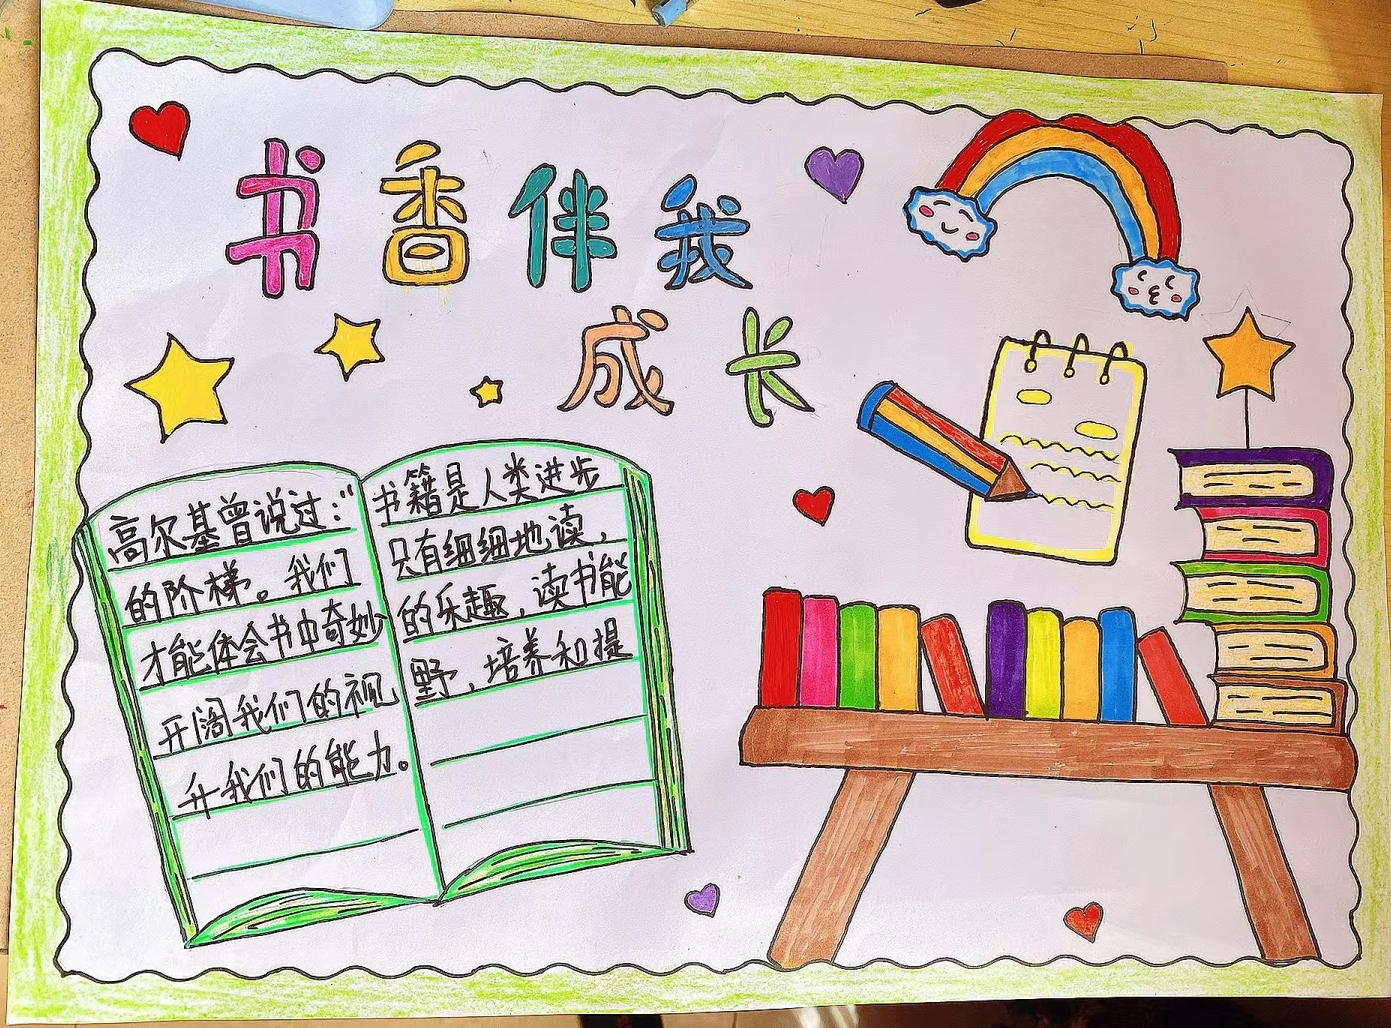 书香伴我
成长
高尔基曾说过:“书籍是人类进步
的阶梯。我们只有细细地读,
才能体会书中奇妙的乐趣,读书能
开阔我们的视野,培养和提
升我们的能力。